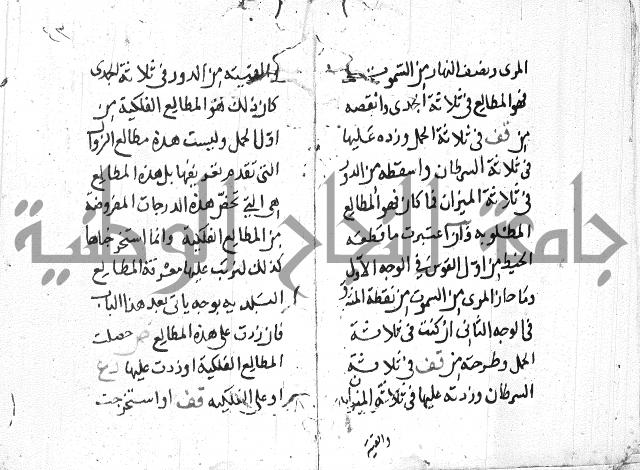 المرى ونصف النهار من السموت
فهو المطالع في ثلاثة الجدى وانقصه
من قف في ثلاثة الحمل وزده عليها
في ثلاثة السرطان واسقطه من الدور
في ثلاثة الميزان فما كان فهو المطالع
المطلوبه وان اعتبرت ما قطعه
الخيط من اول القوس في الوجه الاول
وما حاز المرى من السموت من نقطة
في الوجه الثاني ان كنت في ثلاثة
الحمل وطرحته من قف في ثلاثة
السرطان وزدته عليها في ثلاثة الميزان
والقيته
والقيته من الدور في ثلاثة الجدى
كان ذلك هو المطالع الفلكية من
اول الحمل وليست هذه مطالع الزوال
التي تقدم تعريفها بل هذه المطالع
هي التي تخص هذه الدرجات المفروضة
من المطالع الفلكية وانما استخرجناها
كذلك لنرتب عليها معرفة المطالع
البلديه بوجه ياتي بعد هذا الباب
فان زدت على هذه المطالع حصلت
المطالع الفلكية او زدت عليها
او على الفلكيه قف او استخرجت
جامعة النجاح الوطنية